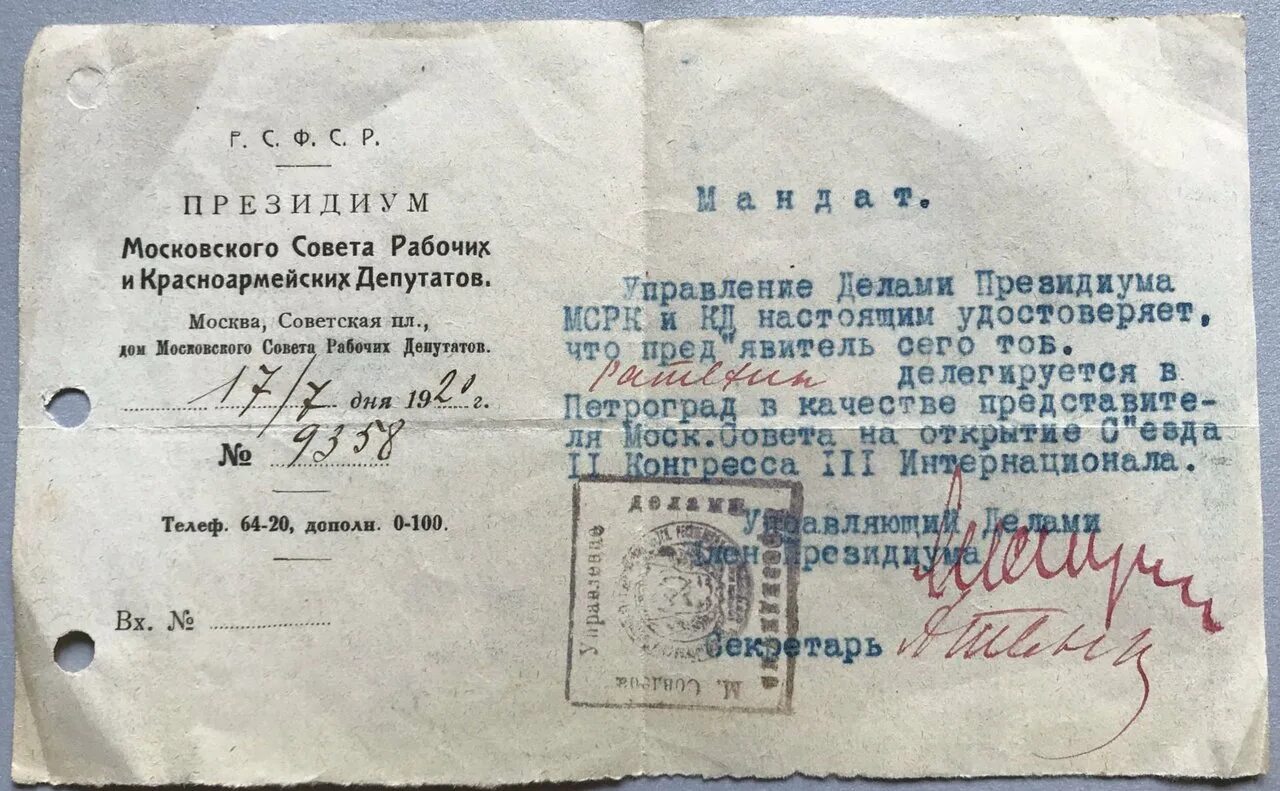 Р. С. Ф. С. Р.
ПРЕЗИДИУМ
Московского Совета Рабочих
и Красноармейских Депутатов.
Москва, Советская пл.,
дом Московского Совета Рабочих Депутатов.
17/7 дня 1920 г.
№ 9358
Телеф. 64-20, дополн. 0-100.
Вх. №
Мандат.
Управление Делами Президиума
МСРК и КД настоящим удостоверяет,
что пред"явитель сего тов.
делегируется в
Петроград в качестве представите-
ля Моск.Совета на открытие С"езда
II Конгресса III Интернационала.
Управляющий Делами
Член Президиума
Секретарь
Управление
делами
Президиума
М. Совдепа